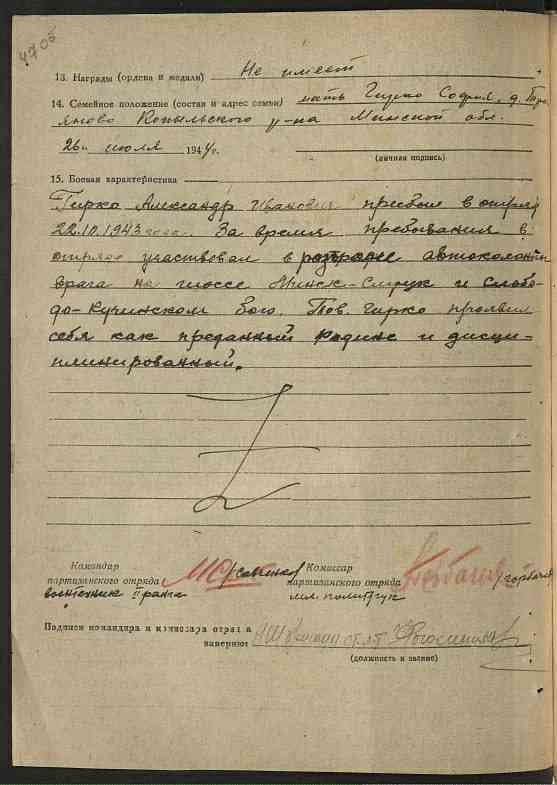 4705
13. Награды (ордена и медали) Не имеет
14. Семейное положение (состав и адрес семьи) мать Гирко София, д. Тро
яново Копыльского р-на Минской обл.
26 июля 1944г.
(личная подпись)
15. Боевая характеристика
Гирко Александр Иванович прибыл в отряд
22.10.1943 года. За время пребывания в
отряде участвовал в разгроме автоколонны
врага на шоссе Минск-Слуцк и Слобо-
до-Кучинском бою. Тов. Гирко проявил
себя как преданный Родине и дисци-
плинированный.
Командир
партизанского отряда
воентехник II ранга
Комиссар
партизанского отряда
мл. политрук
Подписи командира и комиссара отряда
заверяю:
(должность и звание)